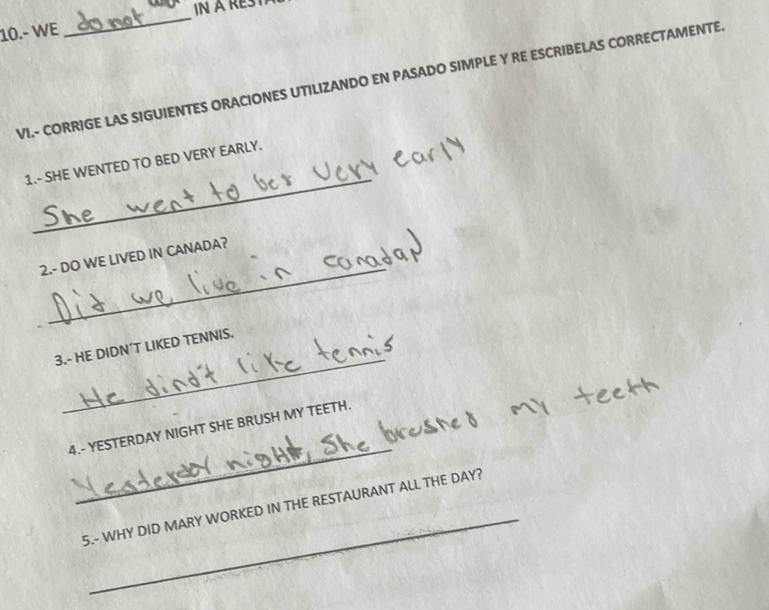 10.- WE do not IN A
VI.- CORRIGE LAS SIGUIENTES ORACIONES UTILIZANDO EN PASADO SIMPLE Y RE ESCRIBELAS CORRECTAMENTE.
1.- SHE WENTED TO BED VERY EARLY.
She went to bed very early
2.- DO WE LIVED IN CANADA?
Did we live in canada?
3.- HE DIDN'T LIKED TENNIS.
He dind't like tennis
4.- YESTERDAY NIGHT SHE BRUSH MY TEETH.
Yesterday night, She brushed my teeth
5.- WHY DID MARY WORKED IN THE RESTAURANT ALL THE DAY?